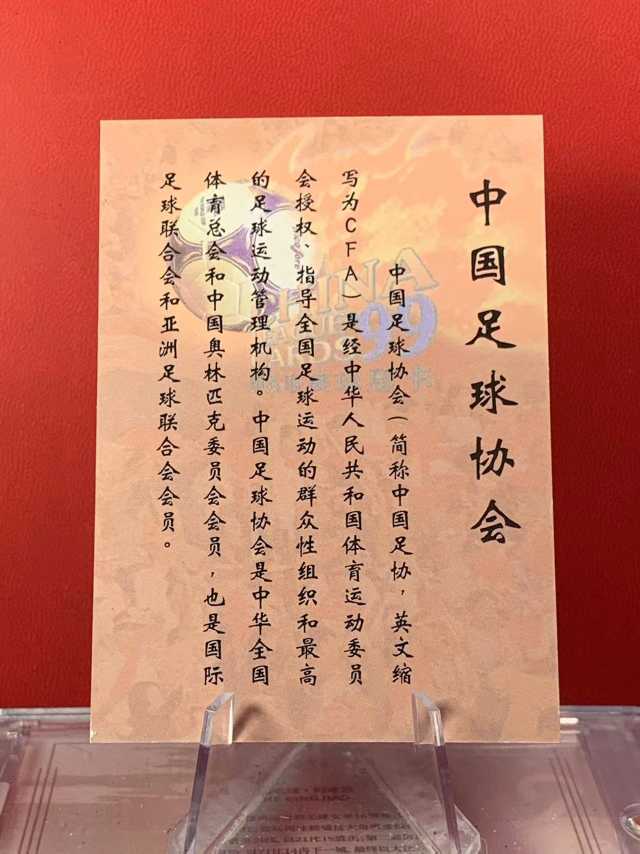 中国足球协会
中国足球协会(简称中国足协,英文缩
写为CFA)是经中华人民共和国体育运动委员
会授权、指导全国足球运动的群众性组织和最高
的足球运动管理机构。中国足球协会是中华全国
体育总会和中国奥林匹克委员会会员,也是国际
足球联合会和亚洲足球联合会会员。
CHINA
99